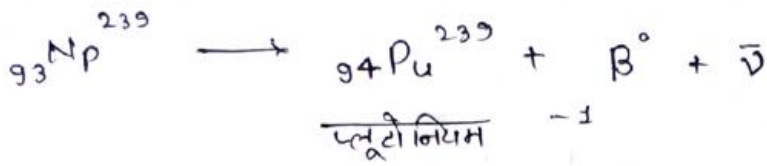 ₉₃Np²³⁹ ⟶ ₉₄Pu²³⁹ + ₋₁β⁰ + ν̄
प्लूटोनियम